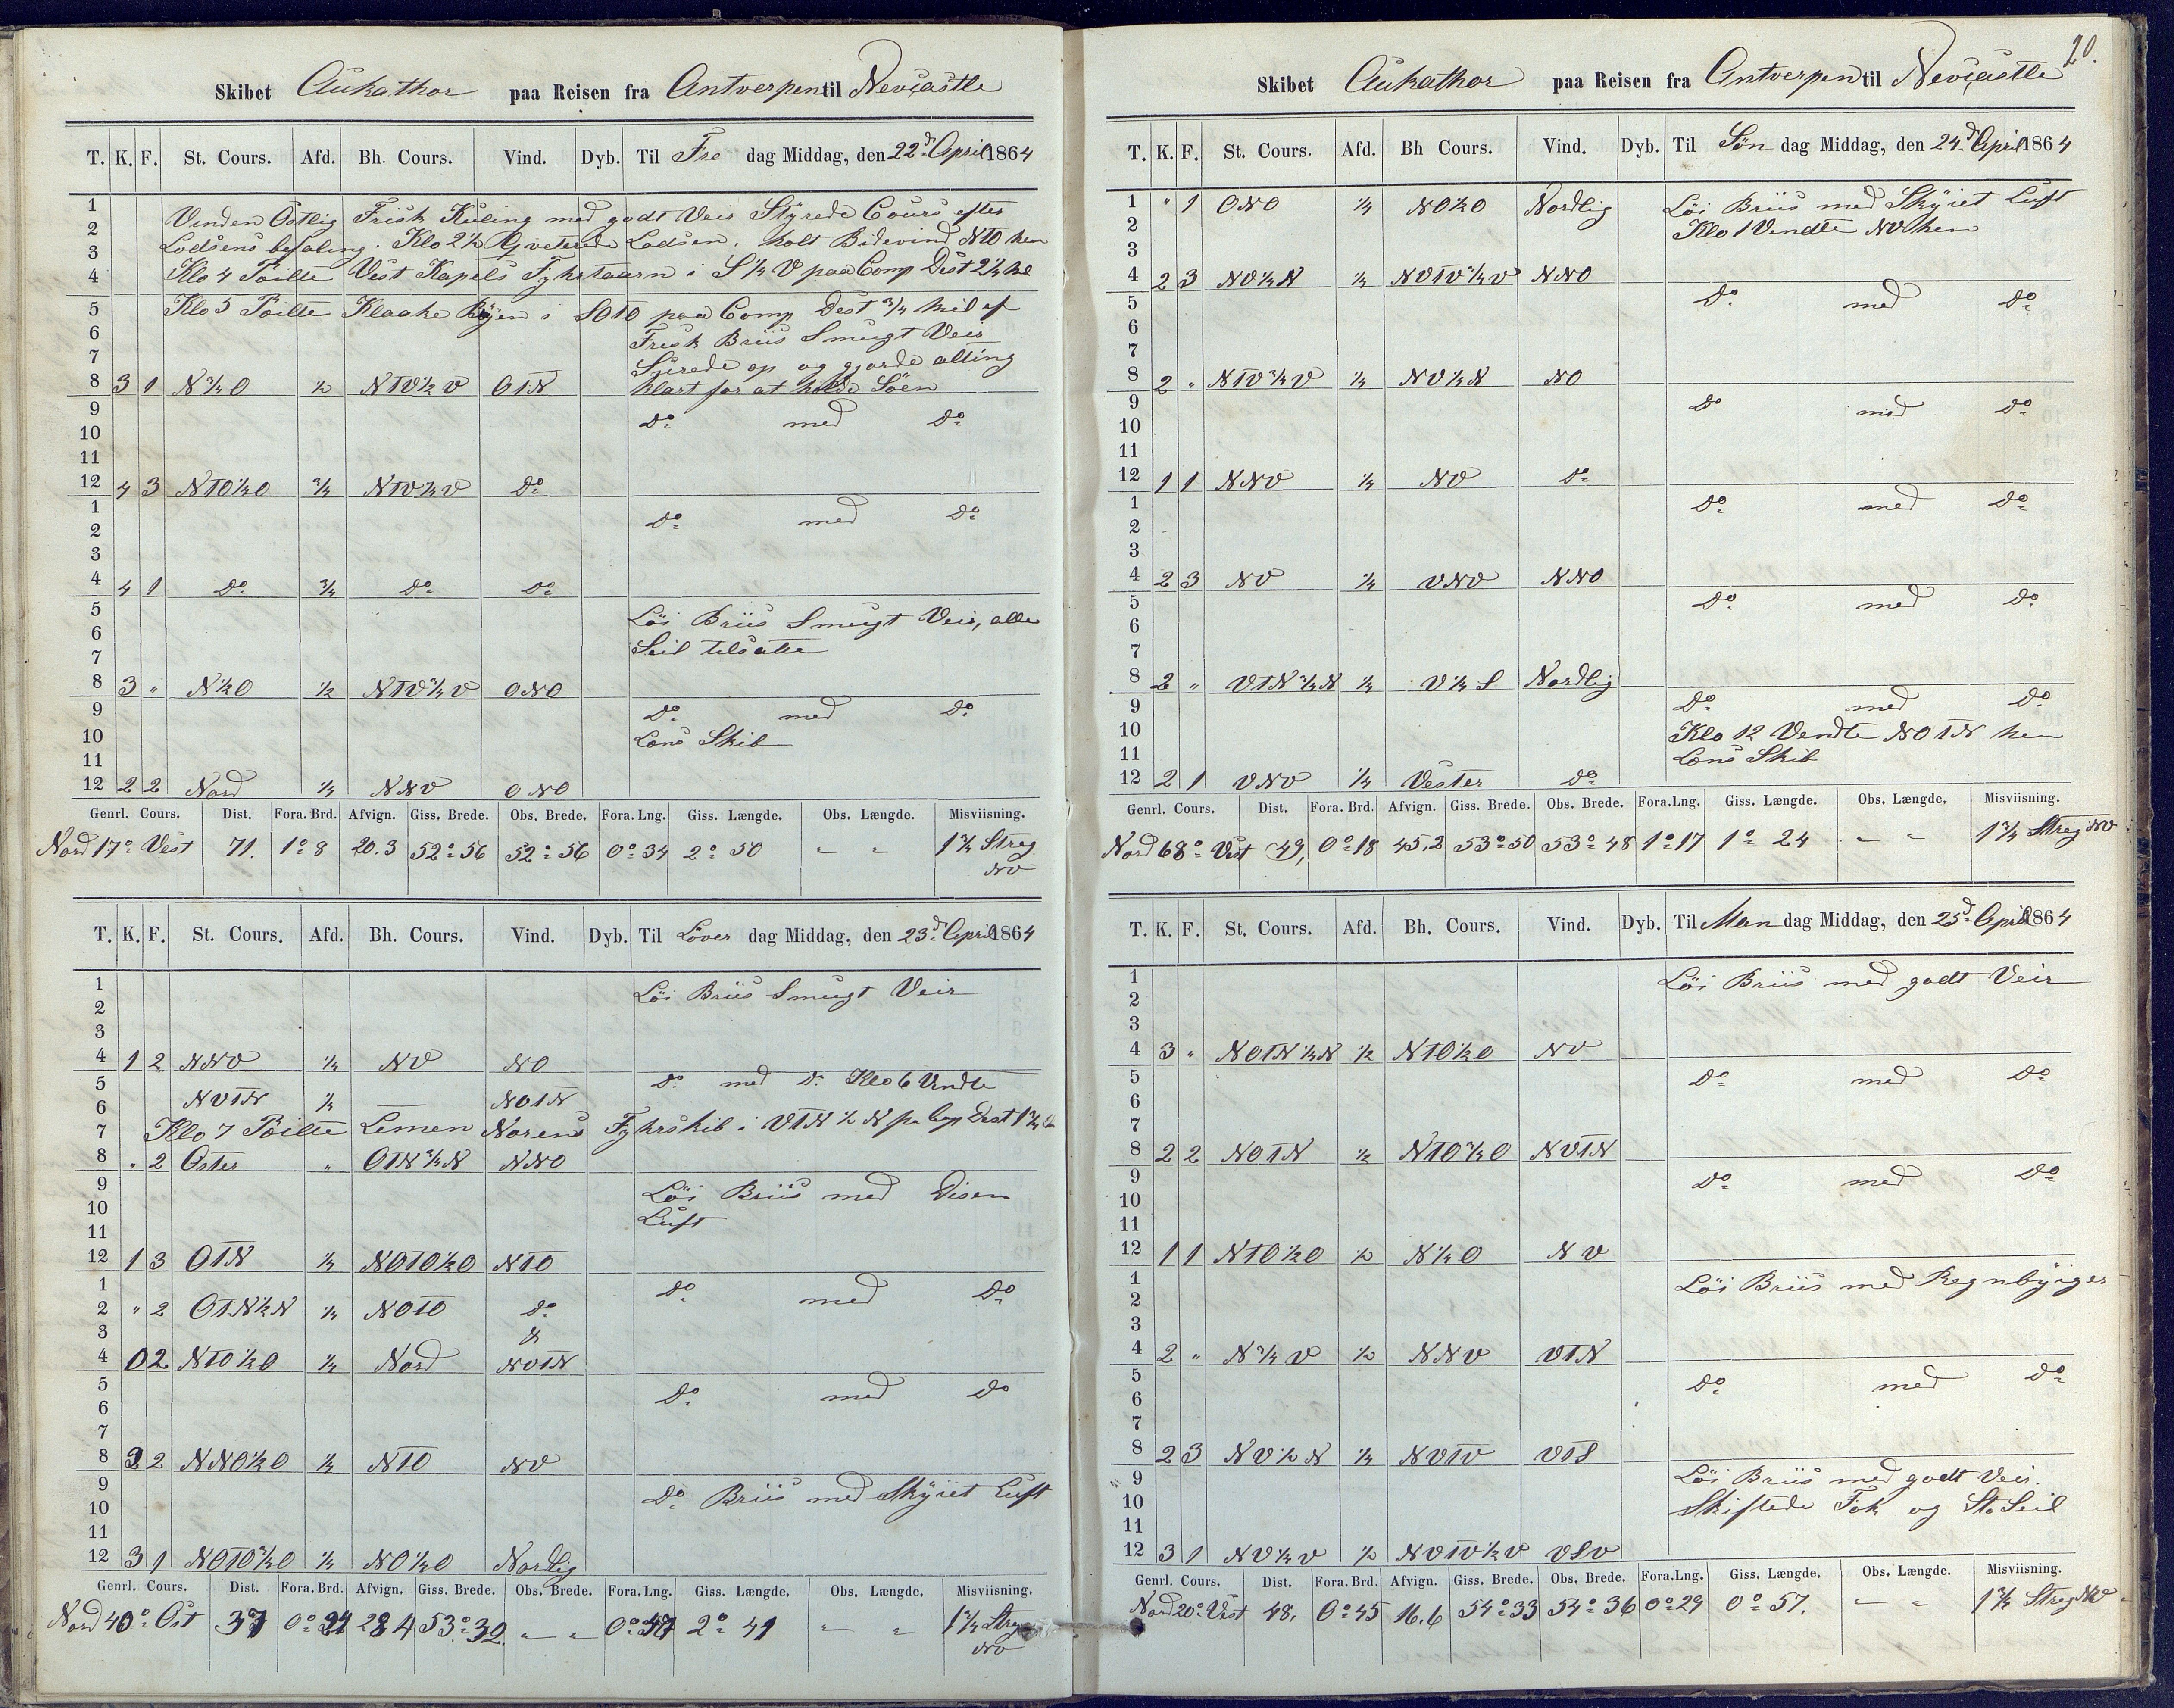 Skibet Aukathor paa Reisen fra Antverpen til Nevcastle
T. K. F. St. Cours. Afd. Bh. Cours. Vind. Dyb. Til Fre dag Middag, den 22d April 1864
1
Vinden Ostlig Frisk Kuling med godt Veir Styrede Cours efter
2
Lodsens befaling. Klo 2½ Qveterede Lodsen. holt Bidevind NTO hen
3
4 Klo 4 Peilte Vest Kapels Fyhrtaarn i S¼V paa Comp Dest 2½ Mil
5 Klo 5 Peilte Klaake Böyen i SOTO paa Comp Dest ¾ Mil af
6 Frisk Briis Smugt Veir
7 Sjurede op og gjorde alting
8 3 1 N¾O ½ NTV½V OTN klart for at holde Söen
9 Do med Do
10
11
12 4 3 NTO½O ¾ NTV½V Do
1 Do med Do
2
3
4 4 1 Do ¾ Do Do
5 Löi Briis Smugt Veir, alle
6
7 Seil tilsatte
8 3 " N½O ½ NTV¾V ONO
9 Do med Do
10 Lens Skib
11
12 2 2 Nord ¼ NNV ONO
Genrl. Cours. Dist. Fora. Brd. Afvign. Giss. Brede. Obs. Brede. Fora. Lng. Giss. Længde. Obs. Længde. Misviisning.
Nord 17° Vest 71. 1° 8 20.3 52° 56 52° 56 0° 34 2° 50 " " 1¾ Streg
NV
T. K. F. St. Cours. Afd. Bh. Cours. Vind. Dyb. Til Löver dag Middag, den 23d April 1864
1 Löi Briis Smugt Veir
2
3
4 1 2 NNV ¼ NV NO
5 Do med Do Klo 6 Vendte
6 NVTN ½ — NOTN
7 Klo 7 Peilte Lemen Norens Fyhrskib i VTN½N pr Cop Dest 1¾
8 " 2 Oster " OTN¾N NNO
9 Löi Briis med Disen
10 Luft
11
12 1 3 OTN ¼ NOTO½O NTO
1 Do med Do
2 " 2 OTN½N ¼ NOTO Do
3 &
4 0 2 NTO½O ¼ Nord NOTN
5 Do med Do
6
7
8 3 2 NNO½O ¼ NTO NV
9 Do Briis med Skyiet Luft
10
11
12 3 1 NOTO¾O ¼ NO½O Nordlig
Genrl. Cours. Dist. Fora. Brd. Afvign. Giss. Brede. Obs. Brede. Fora. Lng. Giss. Længde. Obs. Længde. Misviisning.
Nord 40° Ost 37 28 4 53° 32 " " 2° 41 " " 1¾ Streg
NV
20.
Skibet Aukathor paa Reisen fra Antverpen til Nevcastle
T. K. F. St. Cours. Afd. Bh Cours. Vind. Dyb. Til Sön dag Middag, den 24d April 1864
1 " 1 ONO ¼ NO½O Nordlig Löi Briis med Skyiet Luft
2 Klo 1 Vendte NV hen
3
4 2 3 NV½N ¼ NVTV¾V NNO
5 Do med Do
6
7
8 2 " NTV¾V ¼ NV½N NO
9 Do med Do
10
11
12 1 1 NNV ¼ NV Do
1 Do med Do
2
3
4 2 3 NV ¼ VNV NNO
5 Do med Do
6
7
8 2 " VTN¾N ¼ V½S Nordlig
9 Do med Do
10 Klo 12 Vendte NOTN hen
11 Lens Skib
12 2 1 VNV ¼ Vester Do
Genrl. Cours. Dist. Fora. Brd. Afvign. Giss. Brede. Obs. Brede. Fora. Lng. Giss. Længde. Obs. Længde. Misviisning.
Nord 68° Vest 49, 0° 18 45,2 53° 50 53° 48 1° 17 1° 24 " " 1¾ Streg NV
T. K. F. St. Cours. Afd. Bh. Cours. Vind. Dyb. Til Man dag Middag, den 25d April 1864
1 Löi Briis med godt Veir
2
3
4 3 " NOTN½N ½ NTO½O NV
5 Do med Do
6
7
8 2 2 NOTN ½ NTO¾O NVTN
9 Do med Do
10
11
12 1 1 NTO½O ½ N¼O NV
1 Löi Briis med Regnbyiger
2
3
4 2 " N¾V ½ NNV VTN
5 Do med Do
6
7
8 2 3 NV½N ¼ NVTV VTS
9 Löi Briis med godt Veir.
10 Skiftede Fok og St. Seil
11
12 3 1 NV½V ½ NVTV½V VSV
Genrl. Cours. Dist. Fora. Brd. Afvign. Giss. Brede. Obs. Brede. Fora. Lng. Giss. Længde. Obs. Længde. Misviisning.
Nord 20° Vest 48. 0° 45 16.6 54° 33 54° 36 0° 29 0° 57. " " 1¾ Streg NV